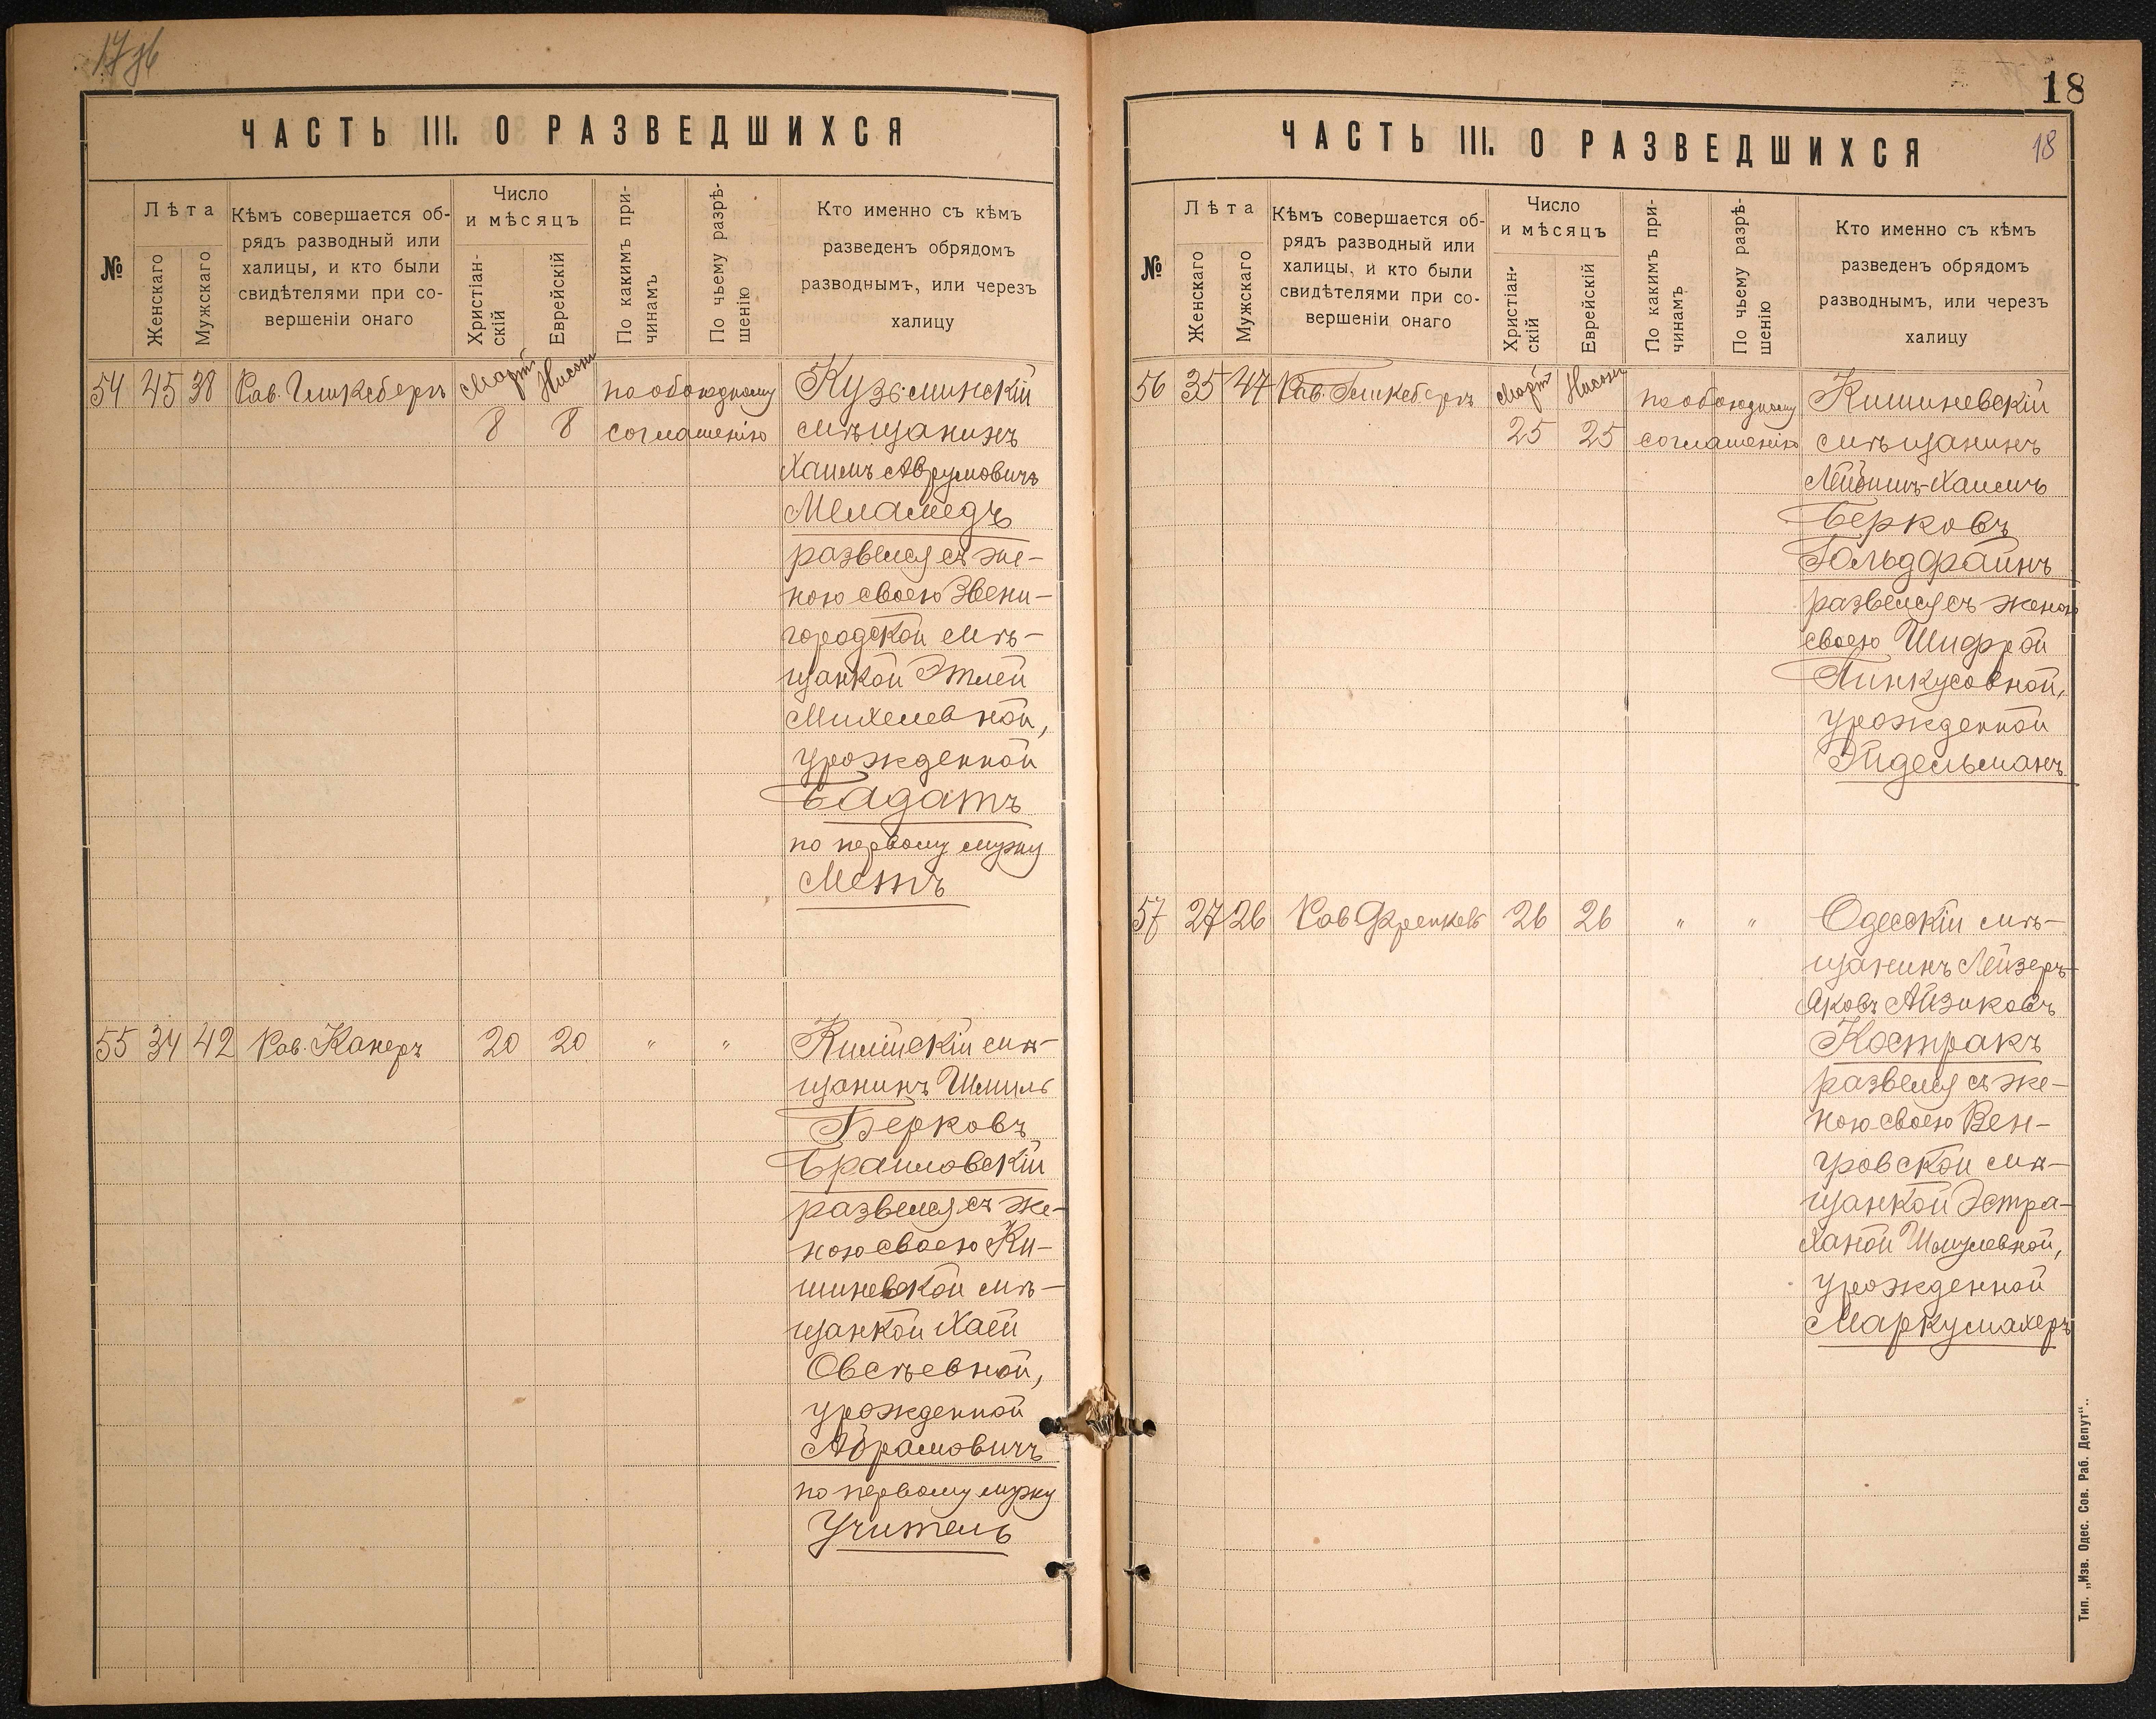 17 зб
ЧАСТЬ III. О РАЗВЕДШИХСЯ
№
Лѣта
Женскаго
Мужскаго
Кѣмъ совершается об-
рядъ разводный или
халицы, и кто были
свидѣтелями при со-
вершеніи онаго
Число
и мѣсяцъ
Христіан-
скій
Еврейскій
По какимъ при-
чинамъ
По чьему разрѣ-
шенію
Кто именно съ кѣмъ
разведенъ обрядомъ
разводнымъ, или черезъ
халицу
54 45 38 Рав. Гликсбергъ Мартъ Нисонъ по обоюдному Кузьминскій
8 8 соглашенію мѣщанинъ
Хаимъ Аврумовичъ
Меламедъ
развелся съ же-
ною своею Звени-
городской мѣ-
щанкой Этлей
Михелевной,
урожденной
Бадатъ
по первому мужу
Метъ
55 34 42 Рав. Канеръ 20 20 " " Килійскій мѣ-
щанинъ Шмиль
Берковъ
Браиловскій
развелся съ же-
ною своею Ки-
шиневской мѣ-
щанкой Хаей
Овсѣевной,
урожденной
Абрамовичъ
по первому мужу
Учитель
18
ЧАСТЬ III. О РАЗВЕДШИХСЯ
18
№
Лѣта
Женскаго
Мужскаго
Кѣмъ совершается об-
рядъ разводный или
халицы, и кто были
свидѣтелями при со-
вершеніи онаго
Число
и мѣсяцъ
Христіан-
скій
Еврейскій
По какимъ при-
чинамъ
По чьему разрѣ-
шенію
Кто именно съ кѣмъ
разведенъ обрядомъ
разводнымъ, или черезъ
халицу
56 35 47 Рав. Гликсбергъ Мартъ Нисонъ по обоюдному Кишиневскій
25 25 соглашенію мѣщанинъ
Лейбишъ-Хаимъ
Берковъ
Гольдфайнъ
развелся съ женою
своею Шифрой
Пинкусовной,
урожденной
Эйдельманъ
57 27 26 Рав Френкель 26 26 " " Одесскій мѣ-
щанинъ Лейзеръ-
Яковъ Айзиковъ
Костракъ
развелся съ же-
ною своею Вен-
гровской мѣ-
щанкой Эстра-
Ханой Шмулевной,
урожденной
Маркумахеръ
Тип. „Изв. Одес. Сов. Раб. Депут“..